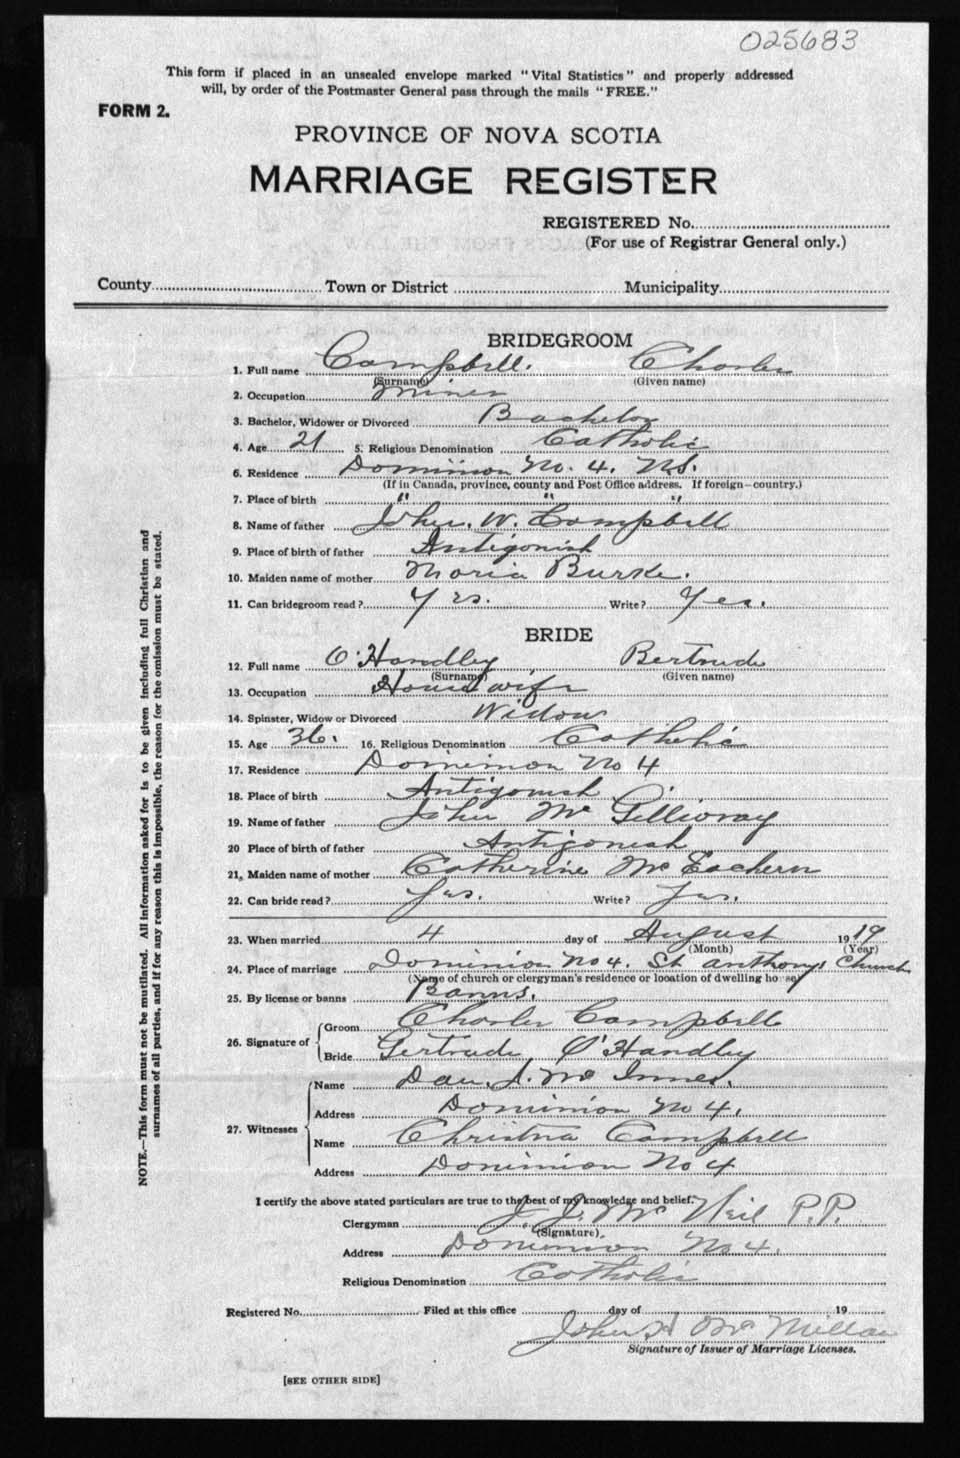 025683
This form if placed in an unsealed envelope marked "Vital Statistics" and properly addressed
will, by order of the Postmaster General pass through the mails "FREE."
FORM 2.
PROVINCE OF NOVA SCOTIA
MARRIAGE REGISTER
REGISTERED No.
(For use of Registrar General only.)
County Town or District Municipality
BRIDEGROOM
1. Full name Campbell. Charles
(Surname) (Given name)
2. Occupation Miner
3. Bachelor, Widower or Divorced Bachelor
4. Age 21 5. Religious Denomination Catholic
6. Residence Dominion No. 4. N.S.
(If in Canada, province, county and Post Office address. If foreign—country.)
7. Place of birth " " "
8. Name of father John. W. Campbell
9. Place of birth of father Antigonish
10. Maiden name of mother Maria Burke.
11. Can bridegroom read? Yes. Write? Yes.
BRIDE
12. Full name O'Handley Bertrude
(Surname) (Given name)
13. Occupation Housewife
14. Spinster, Widow or Divorced Widow
15. Age 36. 16. Religious Denomination Catholic
17. Residence Dominion No 4
18. Place of birth Antigonish
19. Name of father John Mc Gillivray
20 Place of birth of father Antigonish
21. Maiden name of mother Catherine Mc Eachern
22. Can bride read? Yes. Write? Yes.
23. When married 4 day of August 1919
(Month) (Year)
24. Place of marriage Dominion No 4. St Anthony's Church
(Name of church or clergyman's residence or location of dwelling house)
25. By license or banns Banns.
26. Signature of Groom Charles Campbell
Bride Gertrude O'Handley
27. Witnesses Name Dan. J. Mc Innes.
Address Dominion No 4.
Name Christna Campbell
Address Dominion No 4
I certify the above stated particulars are true to the best of my knowledge and belief.
Clergyman J. J. Mc Neil P.P.
(Signature)
Address Dominion No 4.
Religious Denomination Catholic
Registered No. Filed at this office day of 19
John H Mc Millan
Signature of Issuer of Marriage Licenses.
[SEE OTHER SIDE]
NOTE.—This form must not be mutilated. All information asked for is to be given including full Christian and
surnames of all parties, and if for any reason this is impossible, the reason for the omission must be stated.